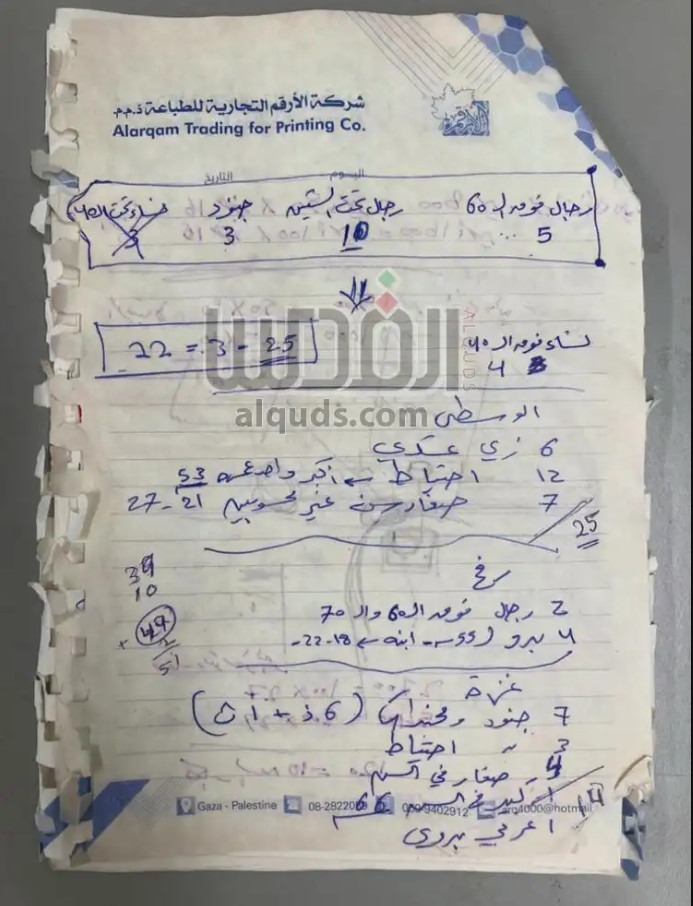 شركة الأرقم التجارية للطباعة ذ.م.م
Alarqam Trading for Printing Co.
اليوم التاريخ
رجال فوق الـ 60 رجال تحت الستين جنود نساء تحت الـ 40
5 10 3 3
نساء فوق الـ 40 22 = 3 - 25
4
القدس
ALQUDS
alquds.com
الوسطى
6 زي عسكري
12 احتياط ← أكبر واحد عمره 53
7 صغار سن غير محسوبين 21 - 27
25
39
10
49
2
51
رفح
2 رجال فوق الـ 60 والـ 70
4 بدو (55 سـ - ابنه ← 18 - 22 -
غزة
7 جنود ومجندات (6 ذ + 1 ث)
3 " احتياط
4 صغار في السن
1 كبير في السن 66
14
1 عربي بدوي
Gaza - Palestine 08-2822 9402912 4000@hotmail